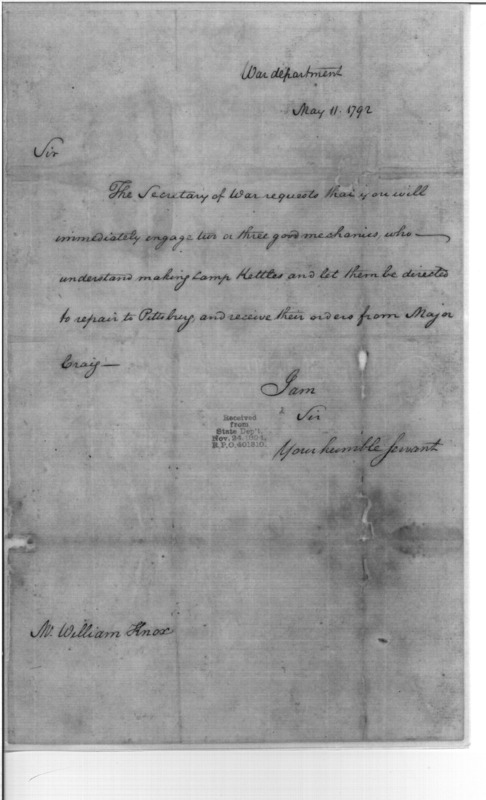 War department
May 11. 1792
Sir
The Secretary of War requests that you will
immediately engage two or three good mechanics, who—
understand making Camp Kettles and let them be directed
to repair to Pittsburg, and receive their orders from Major
Craig—
I am
Sir
Your humble Servant
Received
from
State Dep't.
Nov. 24,
R.P.O. 401810.
Mr. William Knox